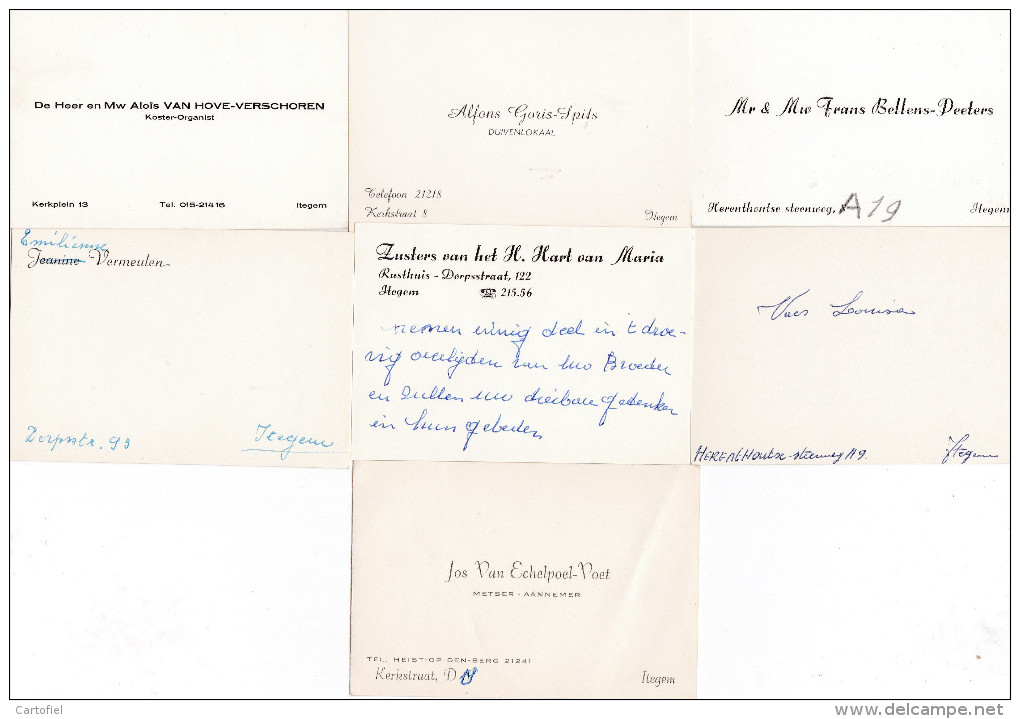 De Heer en Mw Aloïs VAN HOVE-VERSCHOREN
Koster-Organist
Kerkplein 13 Tel. 015-21416 Itegem
Alfons Goris-Spits
DUIVENLOKAAL
Telefoon 21218
Kerkstraat 8 Itegem
Mr & Mw Frans Bellens-Peeters
Herenthoutse steenweg, A19 Itegem
Emilienne
Jeanine Vermeulen
Dorpsstr. 93 Itegem
Zusters van het H. Hart van Maria
Rusthuis - Dorpsstraat, 122
Itegem ☎ 215.56
nemen innig deel in 't droe-
vig overlijden van uw Broeder
en zullen uw dierbare gedenken
in hun gebeden
Vaes Louisa
HERENTHOUTSE-steenweg 119. Itegem
Jos Van Echelpoel-Voet
METSER - AANNEMER
TEL. HEIST-OP-DEN-BERG 21241
Kerkstraat, D Itegem
Cartofiel
delcampe.net